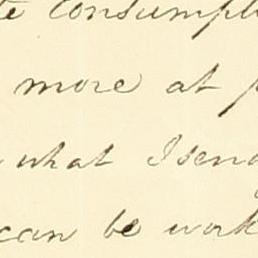 te consumpti
more at p
what I send
can be work